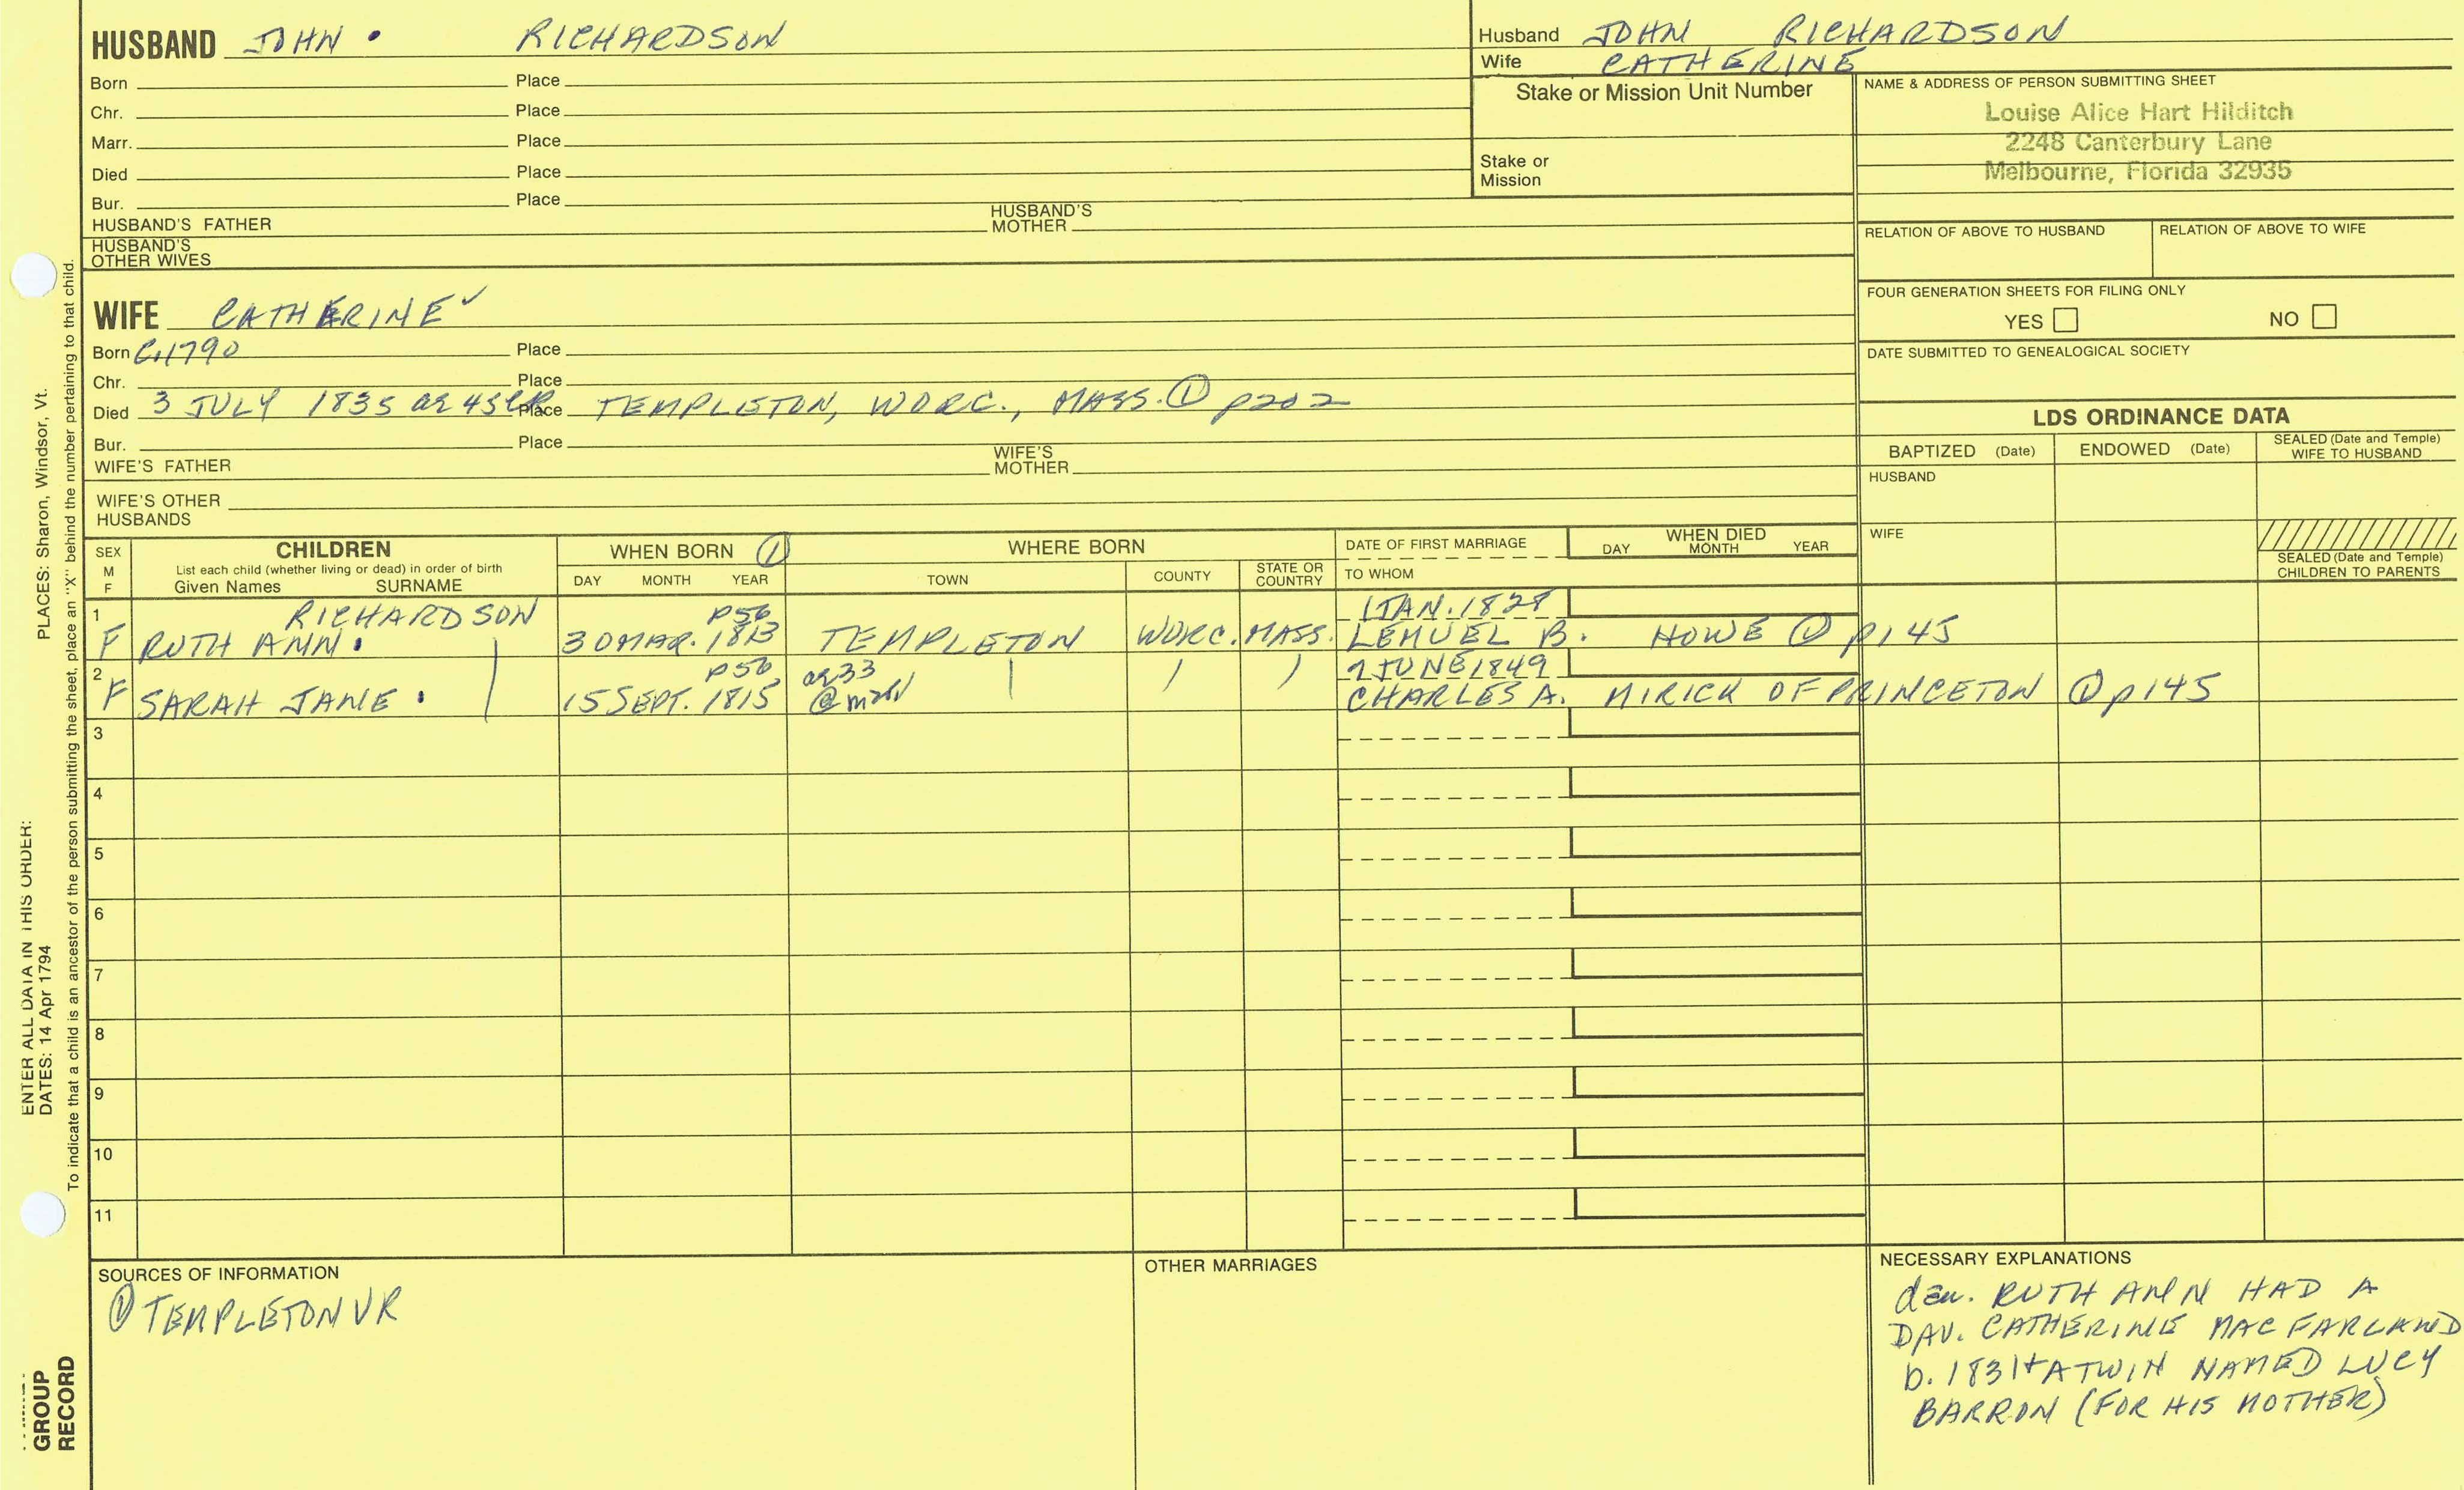 HUSBAND JOHN . RICHARDSON
Husband JOHN RICHARDSON
Wife CATHERINE
Born Place
Chr. Place
Marr. Place
Died Place
Bur. Place
HUSBAND'S FATHER HUSBAND'S MOTHER
HUSBAND'S OTHER WIVES
Stake or Mission Unit Number
Stake or
Mission
NAME & ADDRESS OF PERSON SUBMITTING SHEET
Louise Alice Hart Hilditch
2248 Canterbury Lane
Melbourne, Florida 32935
RELATION OF ABOVE TO HUSBAND RELATION OF ABOVE TO WIFE
FOUR GENERATION SHEETS FOR FILING ONLY
YES NO
DATE SUBMITTED TO GENEALOGICAL SOCIETY
WIFE CATHERINE ✓
Born C.1790 Place
Chr. Place
Died 3 JULY 1835 ae 45 Place TEMPLETON, WORC., MASS. ① p202
Bur. Place
WIFE'S FATHER WIFE'S MOTHER
WIFE'S OTHER
HUSBANDS
LDS ORDINANCE DATA
BAPTIZED (Date) ENDOWED (Date) SEALED (Date and Temple) WIFE TO HUSBAND
HUSBAND
WIFE
SEALED (Date and Temple) CHILDREN TO PARENTS
SEX
M
F
CHILDREN
List each child (whether living or dead) in order of birth
Given Names SURNAME
WHEN BORN ①
DAY MONTH YEAR
WHERE BORN
TOWN COUNTY STATE OR COUNTRY
DATE OF FIRST MARRIAGE
TO WHOM
WHEN DIED
DAY MONTH YEAR
1 RICHARDSON p56 1 JAN. 1828
F RUTH ANN . 30 MAR. 1813 TEMPLETON WORC. MASS. LEMUEL B. HOWE ① p145
2 p56 ae 33 7 JUNE 1849
F SARAH JANE . 15 SEPT. 1815 @ CHARLES A. MIRICK OF PRINCETON ① p145
3
4
5
6
7
8
9
10
11
SOURCES OF INFORMATION
① TEMPLETON VR
OTHER MARRIAGES
NECESSARY EXPLANATIONS
dau. RUTH ANN HAD A
DAU. CATHERINE MACFARLAND
b. 1831 + A TWIN NAMED LUCY
BARRON (FOR HIS MOTHER)
PLACES: Sharon, Windsor, Vt.
ENTER ALL DATA IN THIS ORDER:
DATES: 14 Apr 1794
To indicate that a child is an ancestor of the person submitting the sheet, place an "X" behind the number pertaining to that child.
GROUP
RECORD